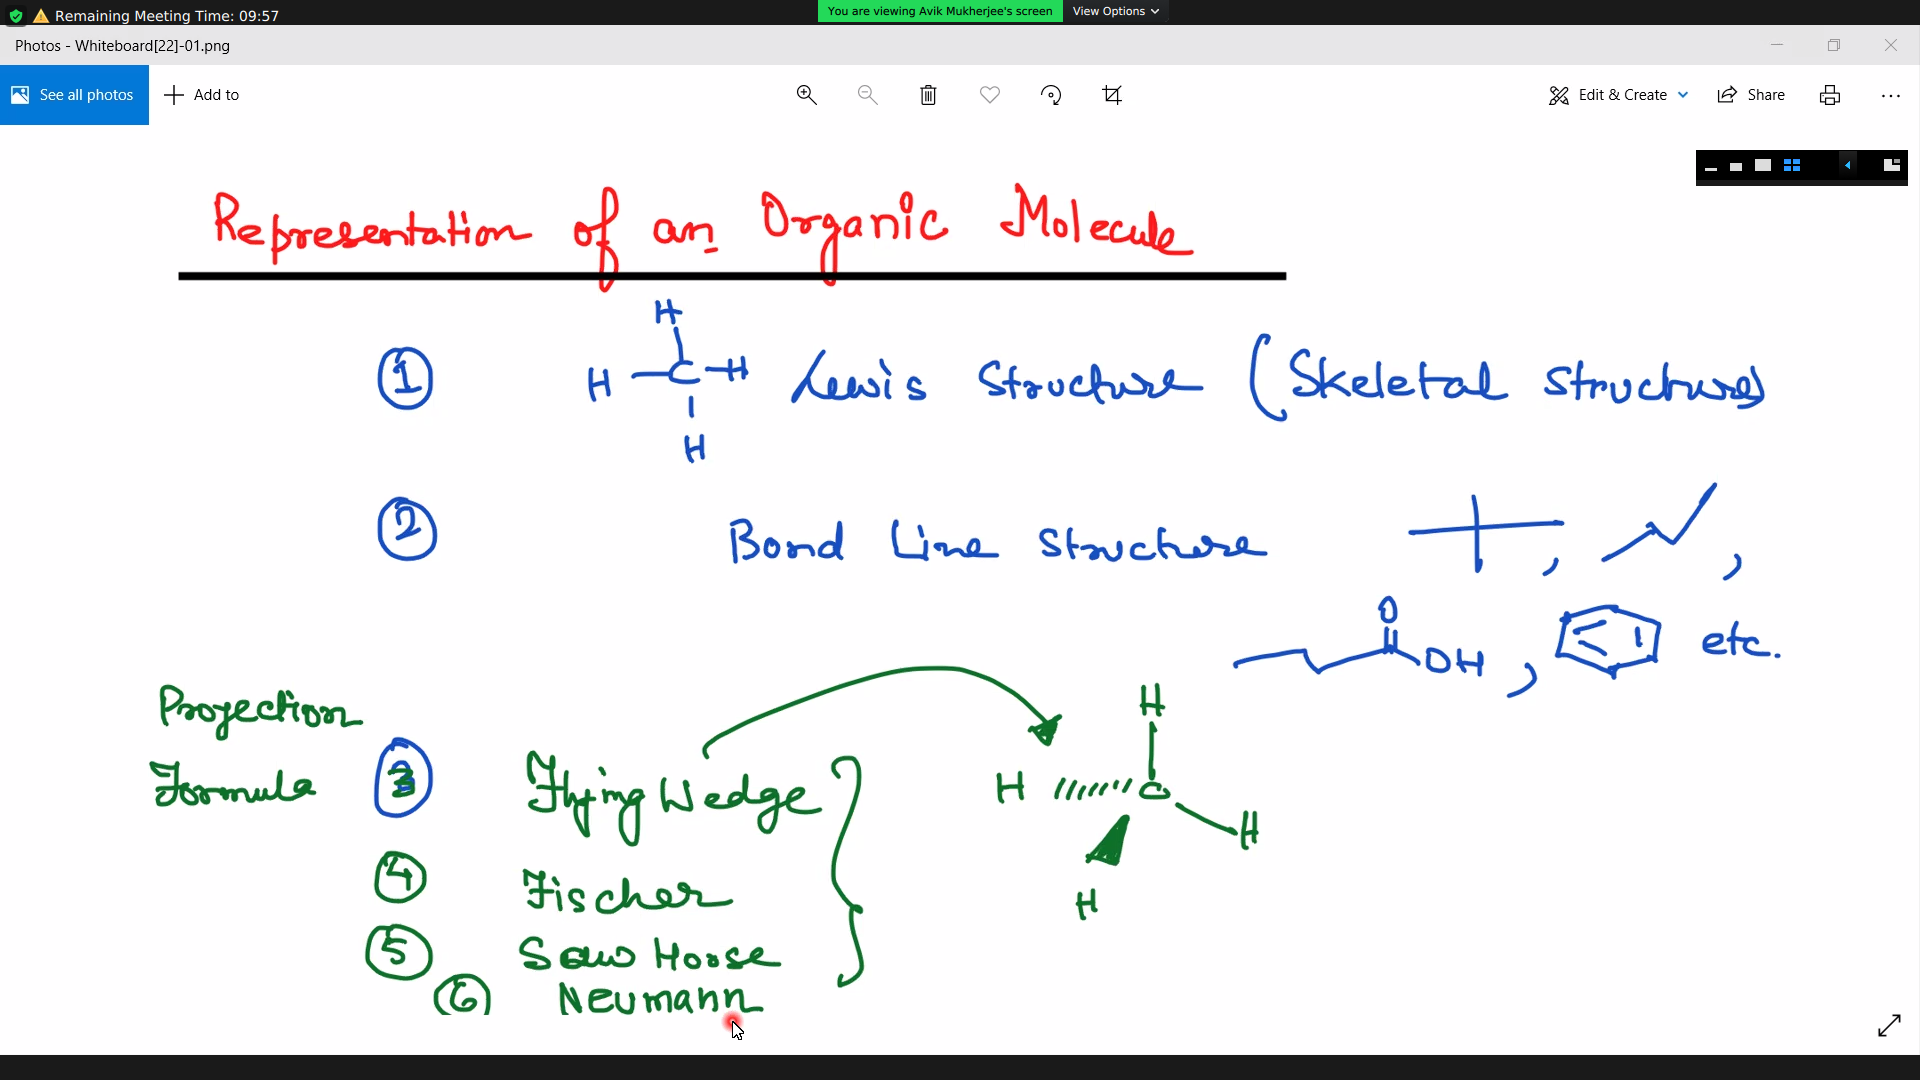 Remaining Meeting Time: 09:57
You are viewing Avik Mukherjee's screen View Options
Photos - Whiteboard[22]-01.png
See all photos Add to Edit & Create Share
Representation of an Organic Molecule
H
1 H C H Lewis Structure (Skeletal Structure)
H
2 Bond Line Structure , ,
O
OH , etc.
Projection
H
Formula 3 Flying Wedge H C H
4 Fischer H
5 Saw Horse
6 Neumann